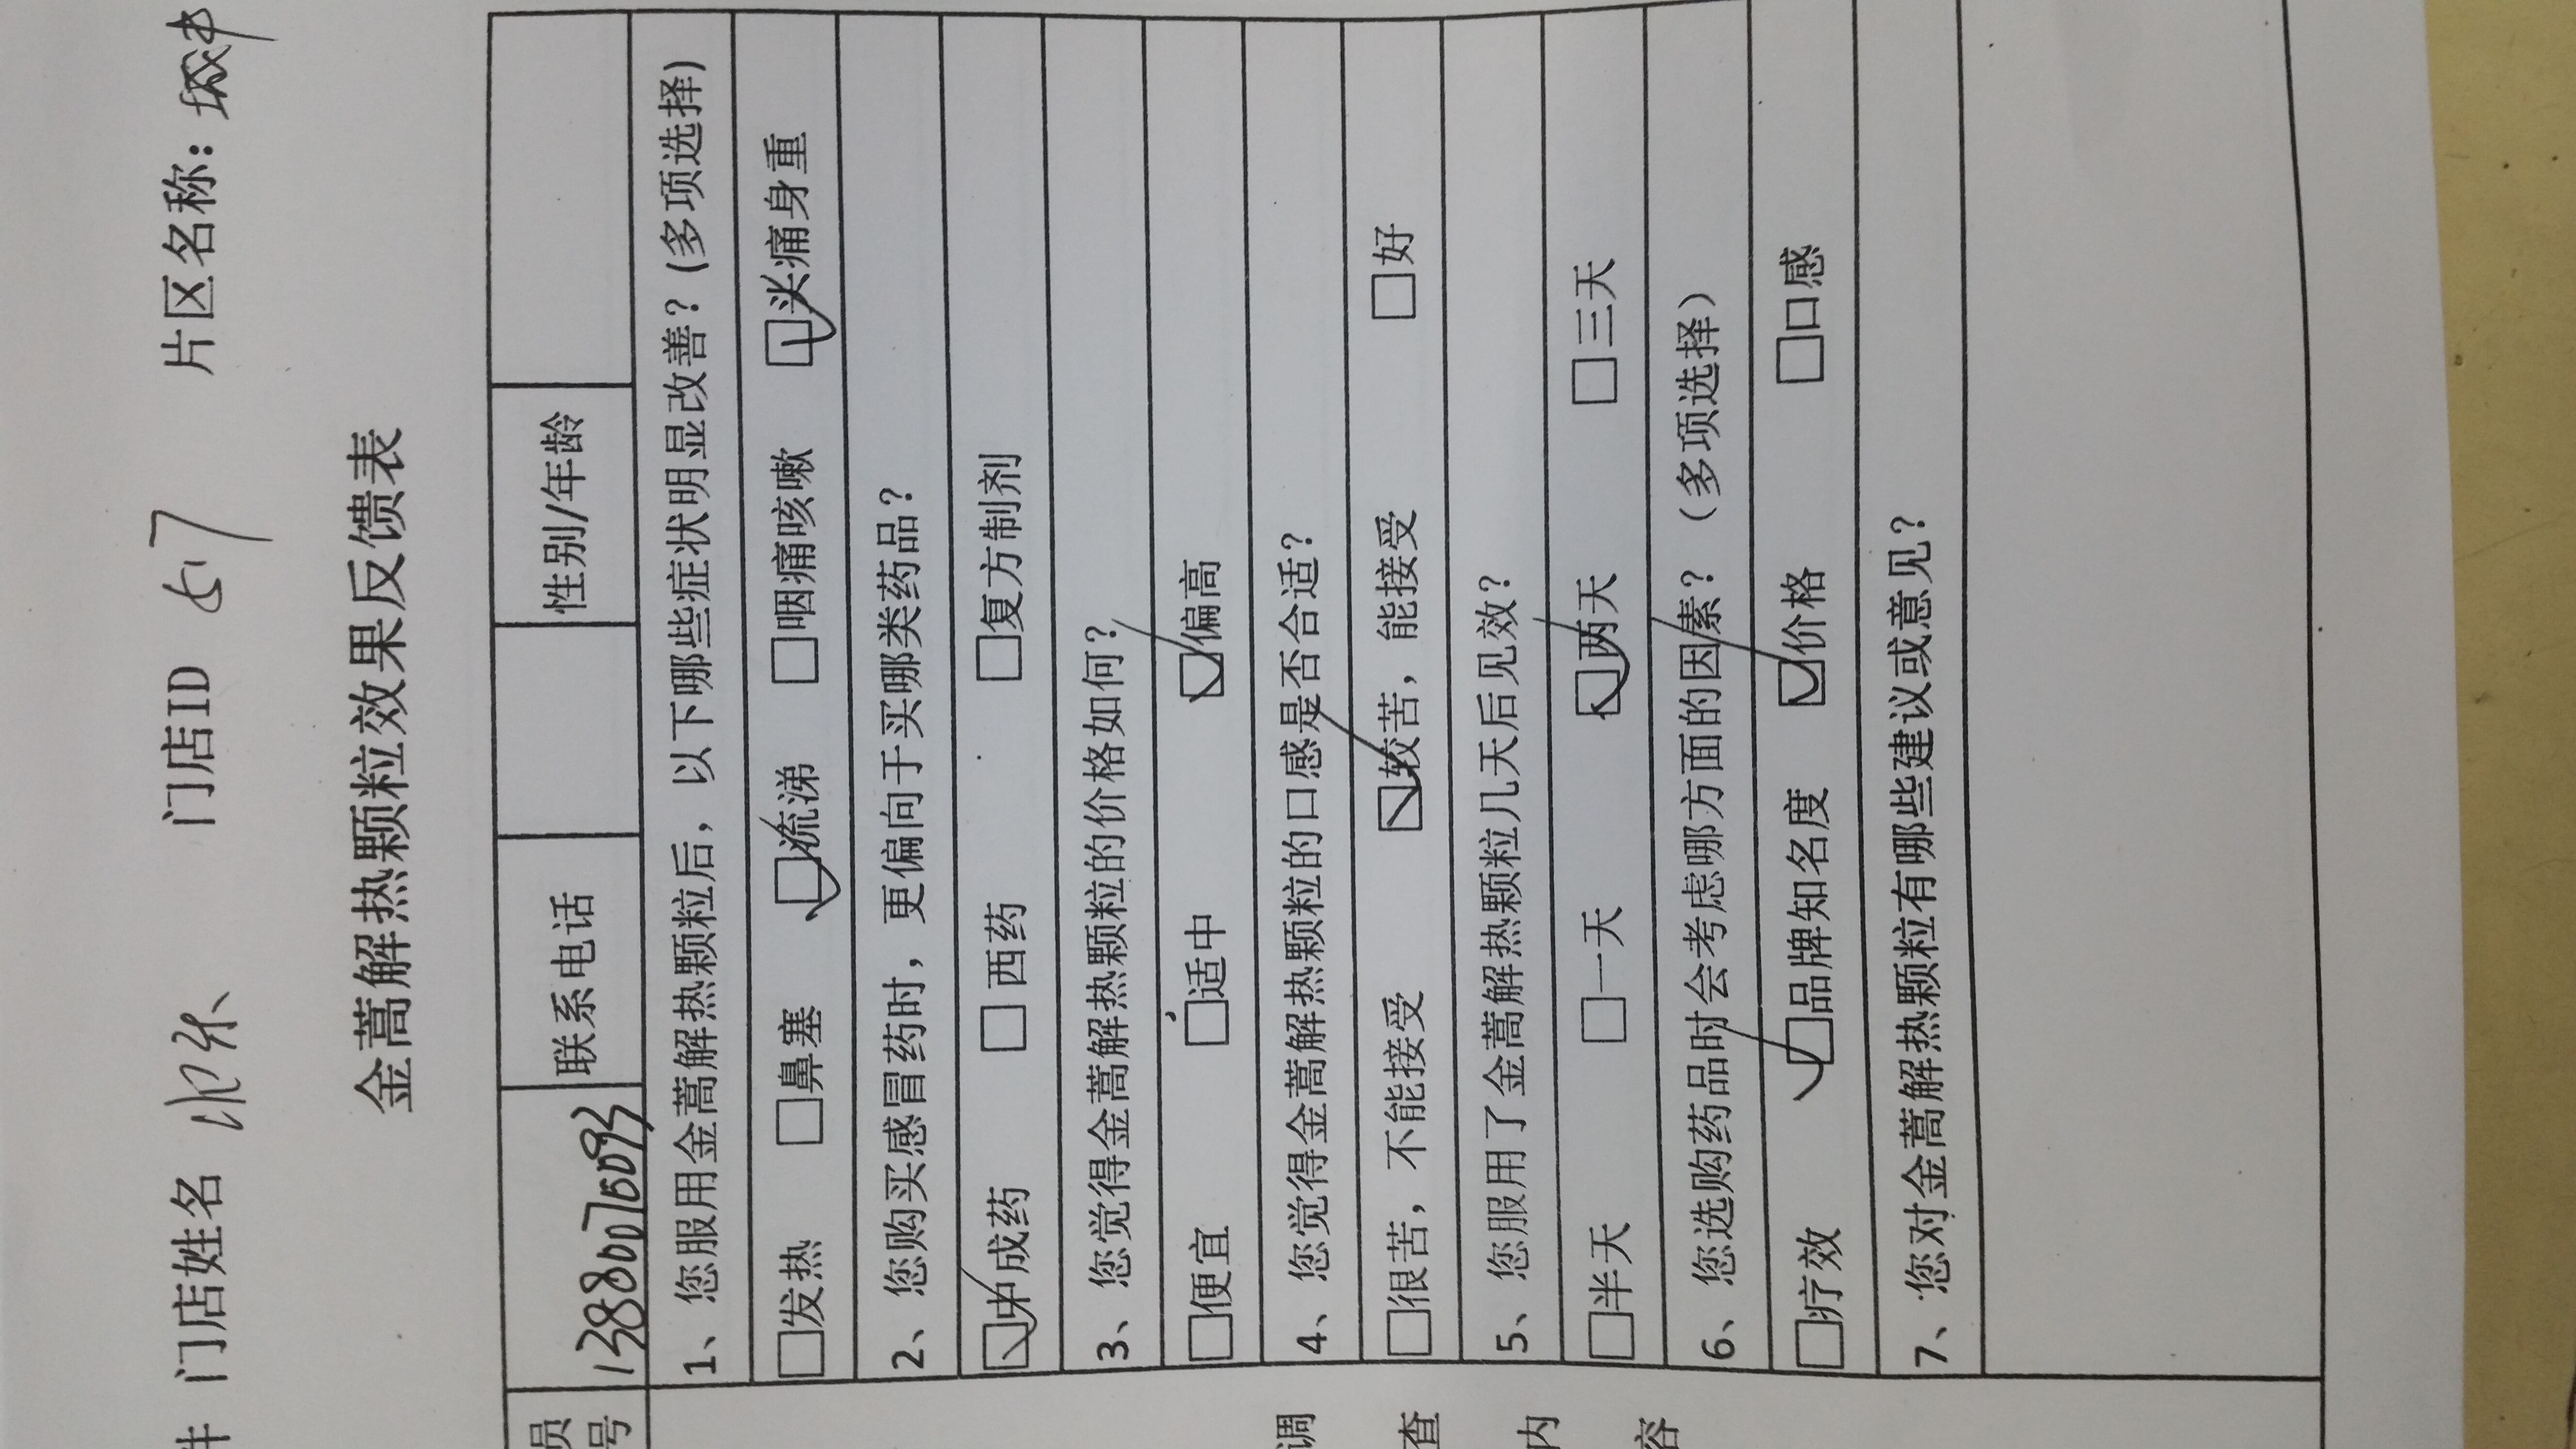 件 门店姓名 门店ID 567 片区名称：城中
金蒿解热颗粒效果反馈表
员号 13880070093 联系电话 性别/年龄
调查内容
1、您服用金蒿解热颗粒后，以下哪些症状明显改善？(多项选择)
□发热 □鼻塞 ☑流涕 □咽痛咳嗽 ☑头痛身重
2、您购买感冒药时，更偏向于买哪类药品？
☑中成药 □西药 □复方制剂
3、您觉得金蒿解热颗粒的价格如何？
□便宜 □适中 ☑偏高
4、您觉得金蒿解热颗粒的口感是否合适？
□很苦，不能接受 ☑较苦，能接受 □好
5、您服用了金蒿解热颗粒几天后见效？
□半天 □一天 ☑两天 □三天
6、您选购药品时会考虑哪方面的因素？（多项选择）
□疗效 ☑品牌知名度 ☑价格 □口感
7、您对金蒿解热颗粒有哪些建议或意见？